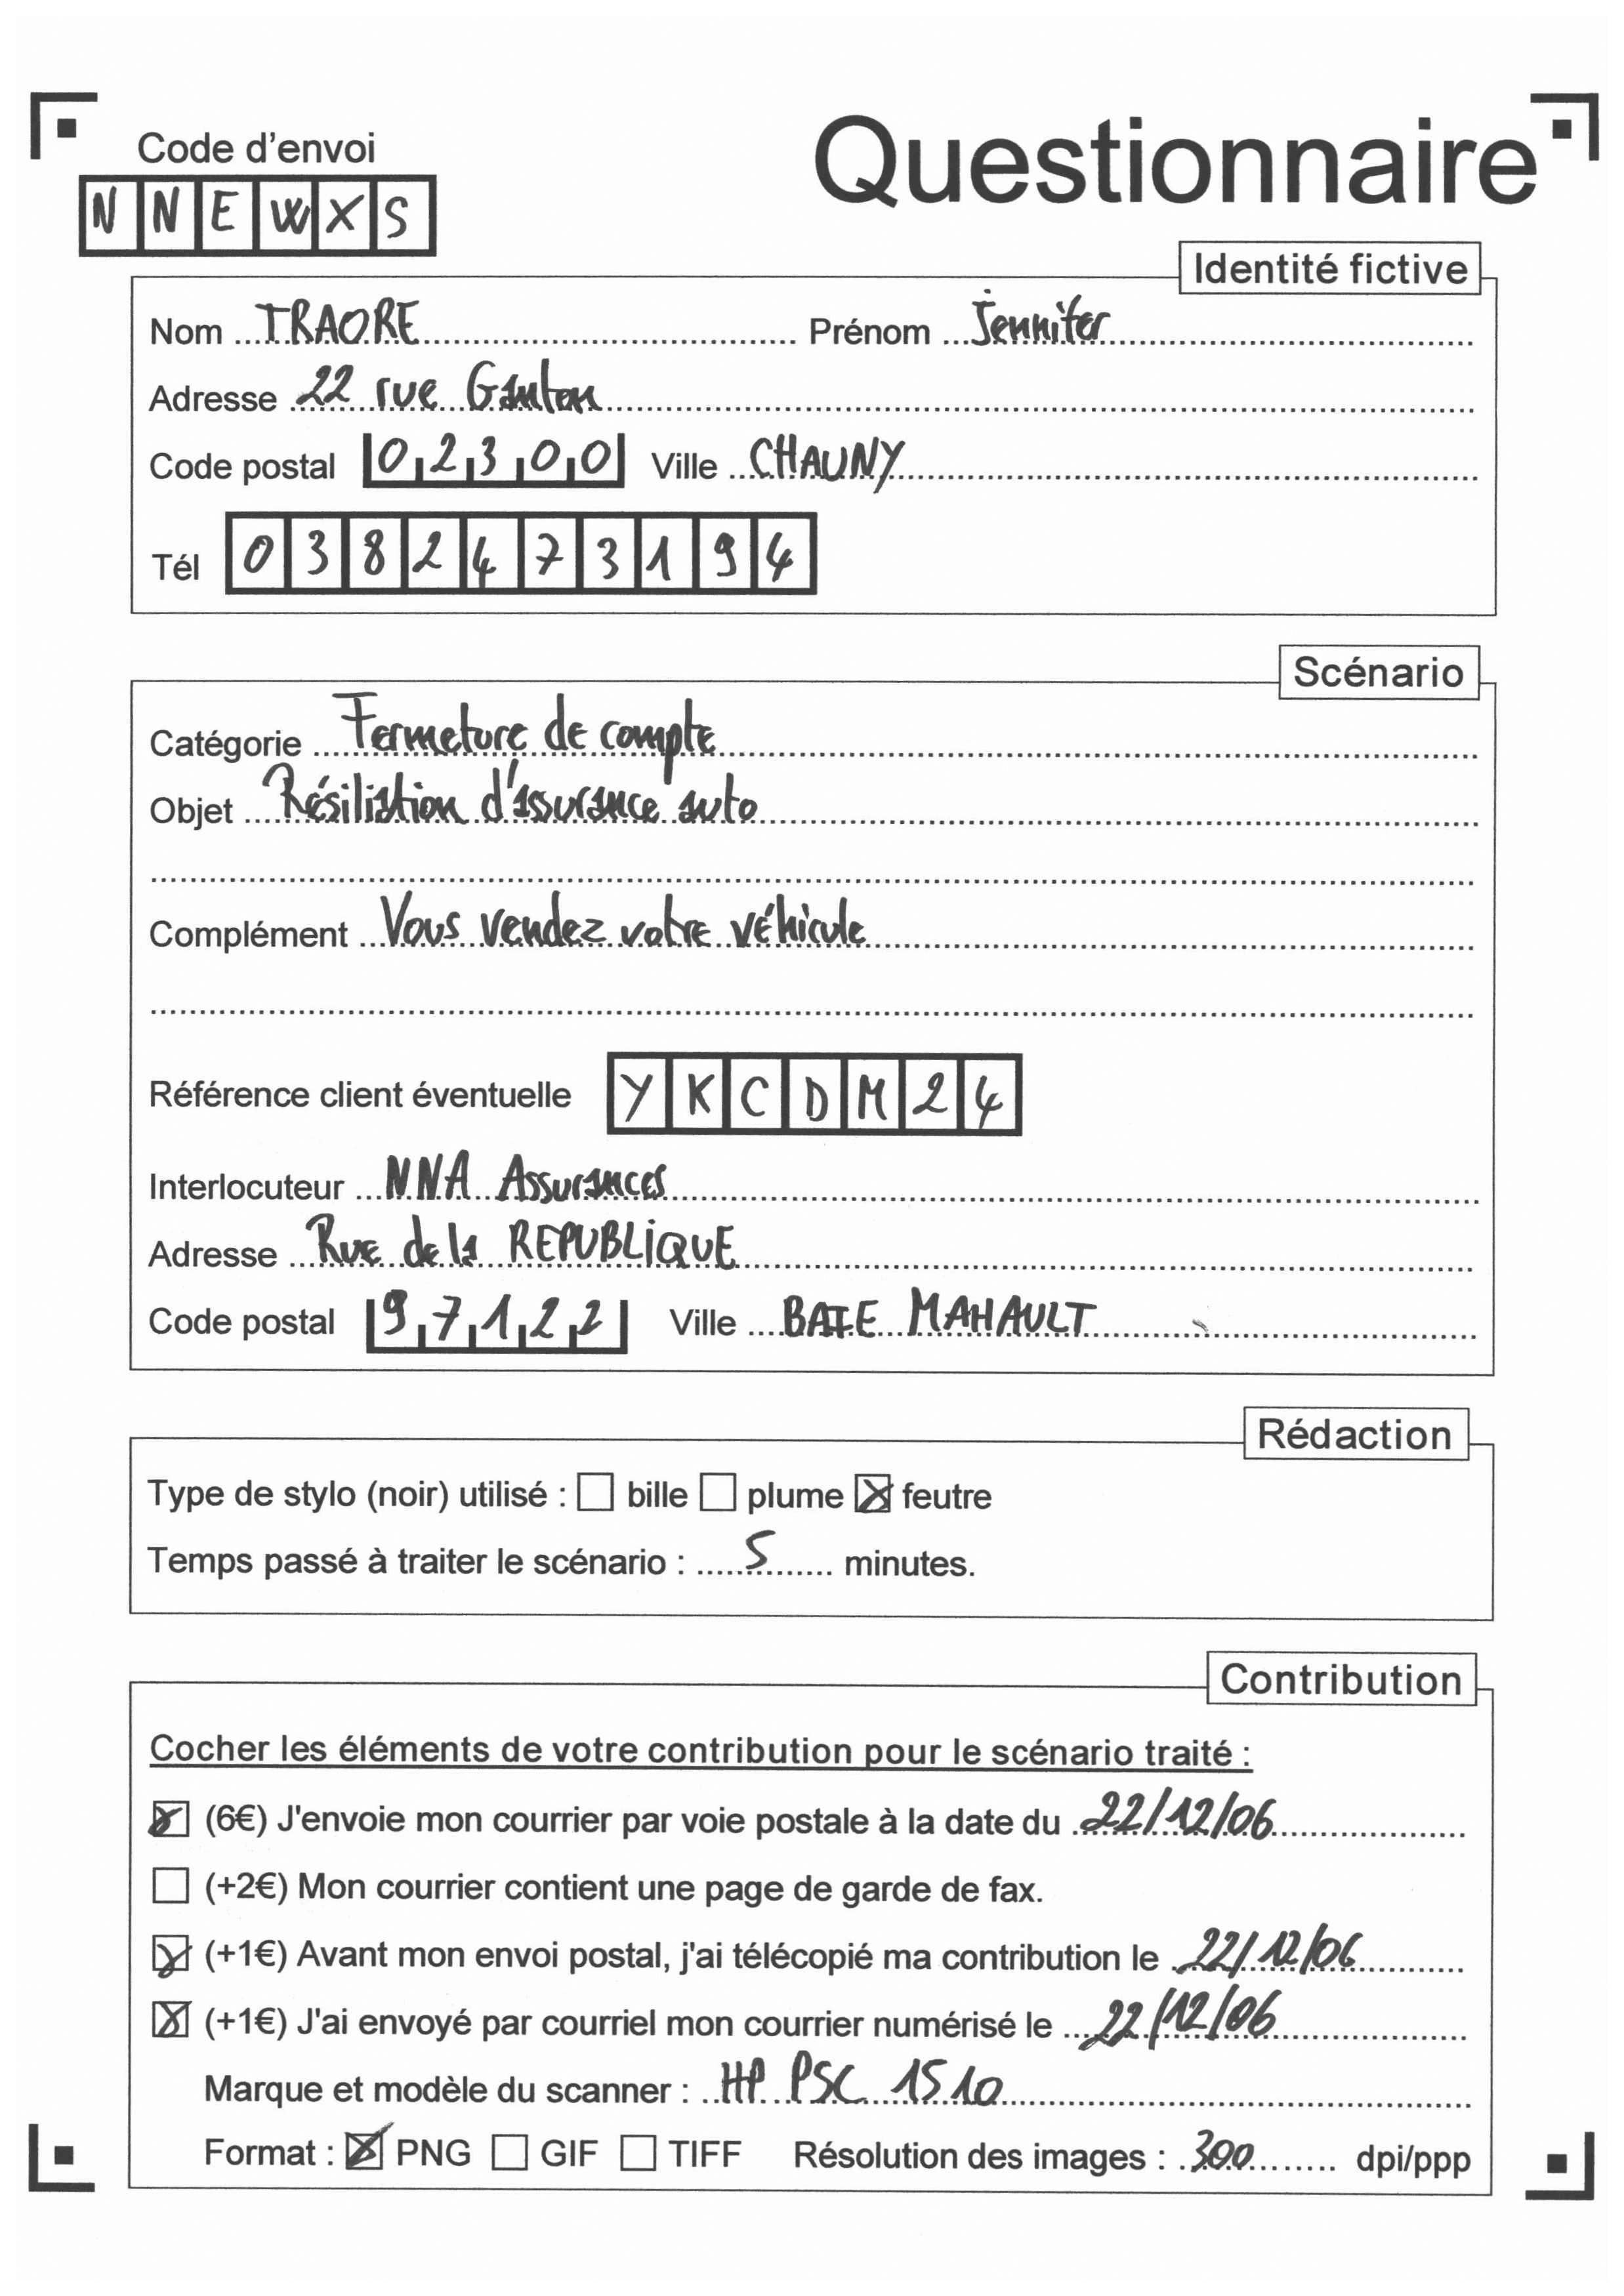 Code d'envoi
Questionnaire
NNEWXS
Identité fictive
Nom TRAORE Prénom Jennifer
Adresse 22 rue Ganton
Code postal 02300 Ville CHAUNY
Tél 0382473194
Scénario
Catégorie Fermeture de compte
Objet Résiliation d'assurance auto
Complément Vous vendez votre véhicule
Référence client éventuelle YKCDM24
Interlocuteur NNA Assurances
Adresse Rue de la REPUBLIQUE
Code postal 97122 Ville BAIE MAHAULT
Rédaction
Type de stylo (noir) utilisé : bille plume feutre
Temps passé à traiter le scénario : 5 minutes.
Contribution
Cocher les éléments de votre contribution pour le scénario traité :
(6€) J'envoie mon courrier par voie postale à la date du 22/12/06
(+2€) Mon courrier contient une page de garde de fax.
(+1€) Avant mon envoi postal, j'ai télécopié ma contribution le 22/12/06
(+1€) J'ai envoyé par courriel mon courrier numérisé le 22/12/06
Marque et modèle du scanner : HP PSC 1510
Format : PNG GIF TIFF Résolution des images : 300 dpi/ppp